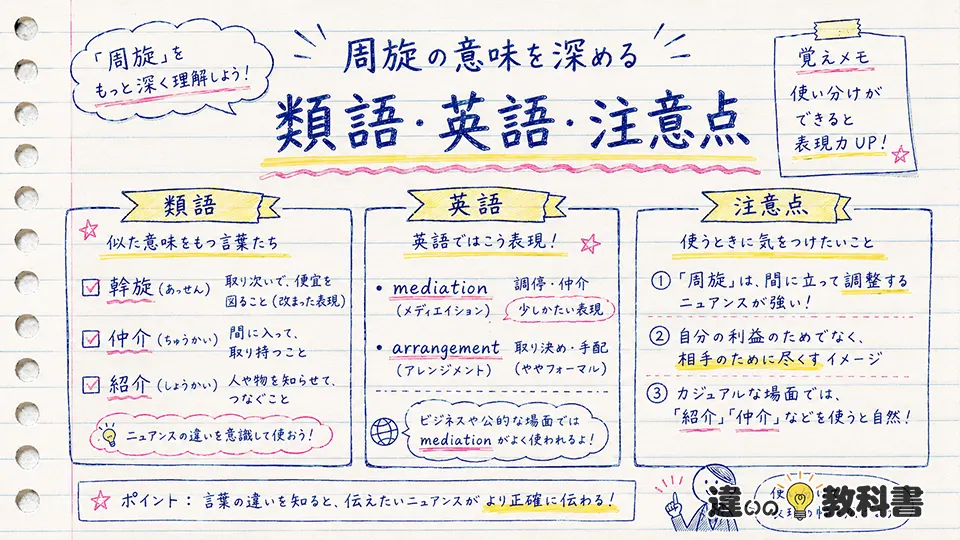 「周旋」を
もっと深く理解しよう!
周旋の意味を深める
類語・英語・注意点
覚えメモ
使い分けが
できると
表現力UP!
類語
似た意味をもつ言葉たち
幹旋(あっせん)
取り次いで、便宜を
図ること(改まった表現)
仲介(ちゅうかい)
間に入って、
取り持つこと
紹介(しょうかい)
人や物を知らせて、
つなぐこと
ニュアンスの違いを意識して使おう!
英語
英語ではこう表現!
• mediation
(メディエイション)
調停・仲介
少しかたい表現
• arrangement
(アレンジメント)
取り決め・手配
(ややフォーマル)
ビジネスや公的な場面では
mediationがよく使われるよ!
注意点
使うときに気をつけたいこと
① 「周旋」は、間に立って調整する
ニュアンスが強い!
② 自分の利益のためでなく、
相手のために尽くすイメージ
③ カジュアルな場面では、
「紹介」「仲介」などを使うと自然!
ポイント: 言葉の違いを知ると、伝えたいニュアンスがより正確に伝わる!
違いの教科書